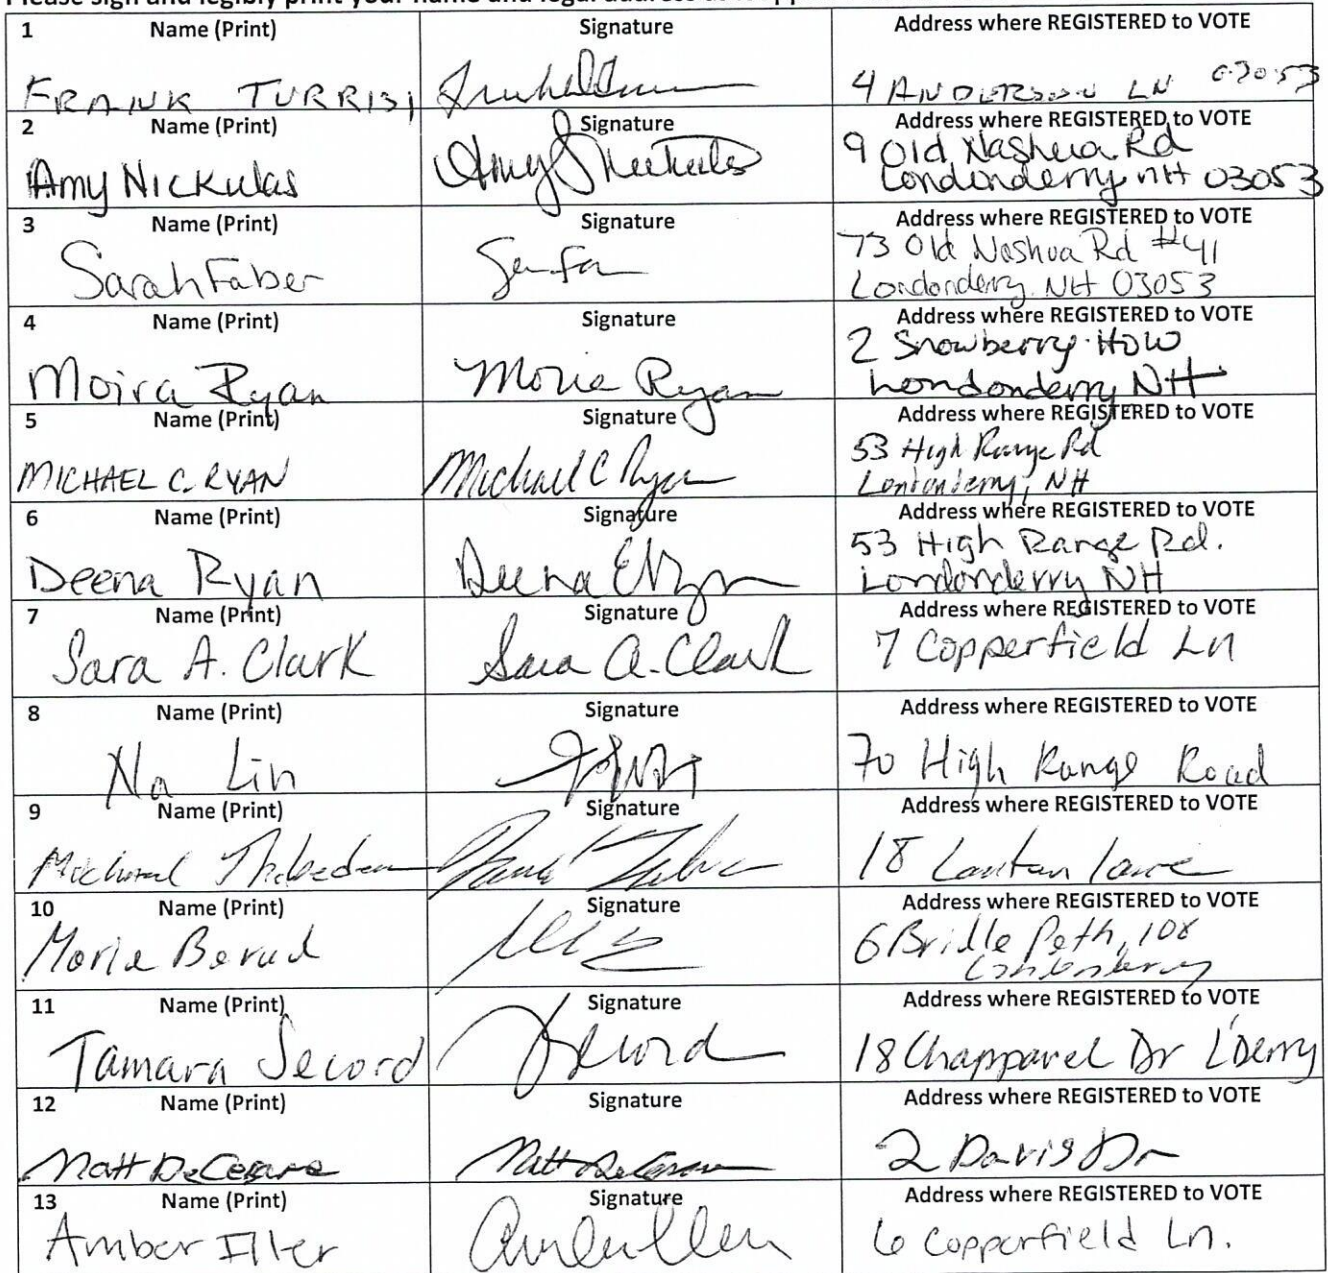 1 Name (Print) Signature Address where REGISTERED to VOTE
FRANK TURRISI 4 ANDERSON LN 03053
2 Name (Print) Signature Address where REGISTERED to VOTE
Amy Nickulas 9 Old Nashua Rd
Londonderry NH 03053
3 Name (Print) Signature Address where REGISTERED to VOTE
Sarah Faber 73 Old Nashua Rd #41
Londonderry NH 03053
4 Name (Print) Signature Address where REGISTERED to VOTE
Moira Ryan Moira Ryan 2 Snowberry How
Londonderry NH
5 Name (Print) Signature Address where REGISTERED to VOTE
MICHAEL C. RYAN Michael C Ryan 53 High Range Rd
Londonderry, NH
6 Name (Print) Signature Address where REGISTERED to VOTE
Deena Ryan Deena E Ryan 53 High Range Rd.
Londonderry NH
7 Name (Print) Signature Address where REGISTERED to VOTE
Sara A. Clark Sara A. Clark 7 Copperfield Ln
8 Name (Print) Signature Address where REGISTERED to VOTE
Na Lin 70 High Range Road
9 Name (Print) Signature Address where REGISTERED to VOTE
Michael 18 lane
10 Name (Print) Signature Address where REGISTERED to VOTE
6 Bridle Path, 108
Londonderry
11 Name (Print) Signature Address where REGISTERED to VOTE
Tamara Secord Secord 18 Chapparel Dr L'Derry
12 Name (Print) Signature Address where REGISTERED to VOTE
Matt DeCesare Matt DeCesare 2 Davis Dr
13 Name (Print) Signature Address where REGISTERED to VOTE
Amber Iller 6 Copperfield Ln.